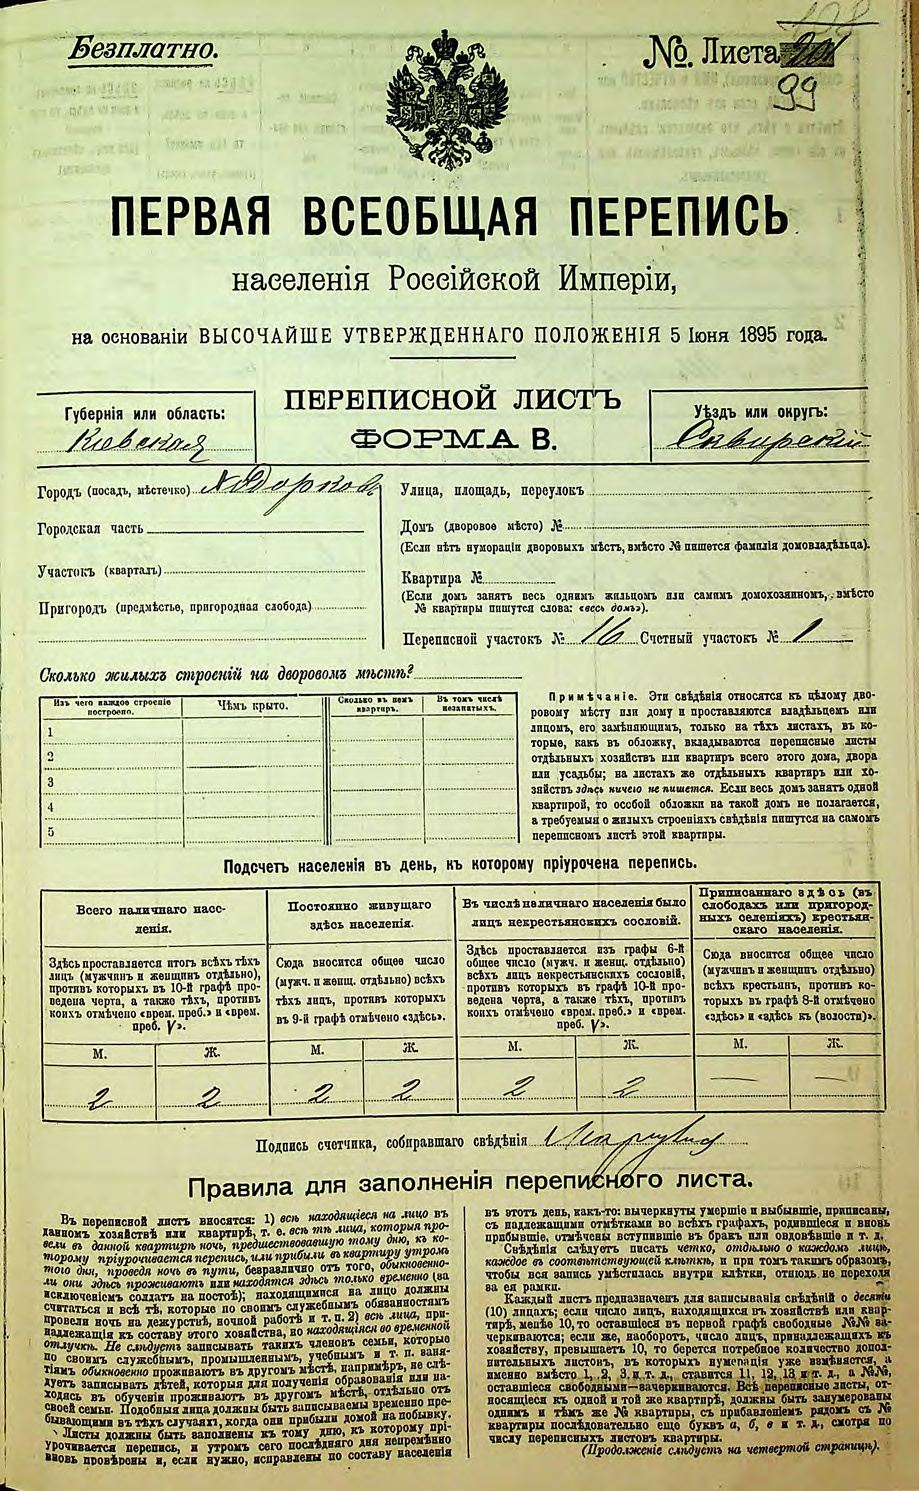 Безплатно.
№. Листа
99
ПЕРВАЯ ВСЕОБЩАЯ ПЕРЕПИСЬ
населенія Россійской Имперіи,
на основаніи ВЫСОЧАЙШЕ УТВЕРЖДЕННАГО ПОЛОЖЕНІЯ 5 Іюня 1895 года.
Губернія или область:
Кіевская
ПЕРЕПИСНОЙ ЛИСТЪ
ФОРМА В.
Уѣздъ или округъ:
Сквирскій
Городъ (посадъ, мѣстечко) Ходорковъ
Городская часть
Участокъ (кварталъ)
Пригородъ (предмѣстье, пригородная слобода)
Улица, площадь, переулокъ
Домъ (дворовое мѣсто) №
(Если нѣтъ нумораціи дворовыхъ мѣстъ, вмѣсто № пишется фамилія домовладѣльца).
Квартира №
(Если домъ занятъ весь однимъ жильцомъ или самимъ домохозяиномъ, вмѣсто
№ квартиры пишутся слова: «весь домъ»).
Переписной участокъ № 16 Счетный участокъ № 1
Сколько жилыхъ строеній на дворовомъ мѣстѣ?
Изъ чего каждое строеніе
построено.
Чѣмъ крыто.
Сколько въ немъ
квартиръ.
Въ томъ числѣ
незанятыхъ.
1
2
3
4
5
Примѣчаніе. Эти свѣдѣнія относятся къ цѣлому дво-
ровому мѣсту или дому и проставляются владѣльцемъ или
лицомъ, его замѣняющимъ, только на тѣхъ листахъ, въ ко-
торые, какъ въ обложку, вкладываются переписные листы
отдѣльныхъ хозяйствъ или квартиръ всего этого дома, двора
или усадьбы; на листахъ же отдѣльныхъ квартиръ или хо-
зяйствъ здѣсь ничего не пишется. Если весь домъ занятъ одной
квартирой, то особой обложки на такой домъ не полагается,
а требуемыя о жилыхъ строеніяхъ свѣдѣнія пишутся на самомъ
переписномъ листѣ этой квартиры.
Подсчетъ населенія въ день, къ которому пріурочена перепись.
Всего наличнаго насе-
ленія.
Здѣсь проставляется итогъ всѣхъ тѣхъ
лицъ (мужчинъ и женщинъ отдѣльно),
противъ которыхъ въ 10-й графѣ про-
ведена черта, а также тѣхъ, противъ
коихъ отмѣчено «врем. преб.» и «врем.
преб. V».
М. Ж.
2 2
Постоянно живущаго
здѣсь населенія.
Сюда вносится общее число
(мужч. и женщ. отдѣльно) всѣхъ
тѣхъ лицъ, противъ которыхъ
въ 9-й графѣ отмѣчено «здѣсь».
М. Ж.
2 2
Въ числѣ наличнаго населенія было
лицъ некрестьянскихъ сословій.
Здѣсь проставляется изъ графы 6-й
общее число (мужч. и женщ. отдѣльно)
всѣхъ лицъ некрестьянскихъ сословій,
противъ которыхъ въ графѣ 10-й про-
ведена черта, а также тѣхъ, противъ
коихъ отмѣчено «врем. преб.» и «врем.
преб. V».
М. Ж.
2 2
Приписаннаго здѣсь (въ
слободахъ или пригород-
ныхъ селеніяхъ) крестьян-
скаго населенія.
Сюда вносится общее число
(мужчинъ и женщинъ отдѣльно)
всѣхъ крестьянъ, противъ ко-
торыхъ въ графѣ 8-й отмѣчено
«здѣсь» и «здѣсь къ (волости)».
М. Ж.
— —
Подпись счетчика, собиравшаго свѣдѣнія
Правила для заполненія переписного листа.
Въ переписной листъ вносятся: 1) всѣ находящіеся на лицо въ
данномъ хозяйствѣ или квартирѣ, т. е. всѣ тѣ лица, которыя про-
вели въ данной квартирѣ ночь, предшествовавшую тому дню, къ ко-
торому пріурочивается перепись, или прибыли въ квартиру утромъ
того дня, проведя ночь въ пути, безразлично отъ того, обыкновенно-
ли они здѣсь проживаютъ или находятся здѣсь только временно (за
исключеніемъ солдатъ на постоѣ); находящимися на лицо должны
считаться и всѣ тѣ, которые по своимъ служебнымъ обязанностямъ
провели ночь на дежурствѣ, ночной работѣ и т. п. 2) всѣ лица, при-
надлежащія къ составу этого хозяйства, но находящіяся во временной
отлучкѣ. Не слѣдуетъ записывать такихъ членовъ семьи, которые
по своимъ служебнымъ, промышленнымъ, учебнымъ и т. п. заня-
тіямъ обыкновенно проживаютъ въ другомъ мѣстѣ, напримѣръ, не слѣ-
дуетъ записывать дѣтей, которыя для полученія образованія или на-
ходясь въ обученіи проживаютъ въ другомъ мѣстѣ, отдѣльно отъ
своей семьи. Подобныя лица должны быть записываемы временно пре-
бывающими въ тѣхъ случаяхъ, когда они прибыли домой на побывку.
Листы должны быть заполнены къ тому дню, къ которому прі-
урочивается перепись, и утромъ сего послѣдняго дня непремѣнно
вновь провѣрены и, если нужно, исправлены по составу населенія
въ этотъ день, какъ-то: вычеркнуты умершіе и выбывшіе, приписаны,
съ надлежащими отмѣтками во всѣхъ графахъ, родившіеся и вновь
прибывшіе, отмѣчены вступившіе въ бракъ или овдовѣвшіе и т. д.
Свѣдѣнія слѣдуетъ писать четко, отдѣльно о каждомъ лицѣ,
каждое въ соотвѣтствующей клѣткѣ, и при томъ такимъ образомъ,
чтобы вся запись умѣстилась внутри клѣтки, отнюдь не переходя
за ея рамки.
Каждый листъ предназначенъ для записыванія свѣдѣній о десяти
(10) лицахъ; если число лицъ, находящихся въ хозяйствѣ или квар-
тирѣ, менѣе 10, то оставшіеся въ первой графѣ свободные №№ за-
черкиваются; если же, наоборотъ, число лицъ, принадлежащихъ къ
хозяйству, превышаетъ 10, то берется потребное количество допол-
нительныхъ листовъ, въ которыхъ нумерація уже измѣняется, а
именно вмѣсто 1, 2, 3 и т. д., ставится 11, 12, 13 и т. д., а №№,
оставшіеся свободными—зачеркиваются. Всѣ переписные листы, от-
носящіеся къ одной и той же квартирѣ, должны быть занумерованы
однимъ и тѣмъ же № квартиры, съ прибавленіемъ рядомъ съ №
квартиры послѣдовательно еще буквъ а, б, в и т. д., смотря по
числу переписныхъ листовъ квартиры.
(Продолженіе слѣдуетъ на четвертой страницѣ).